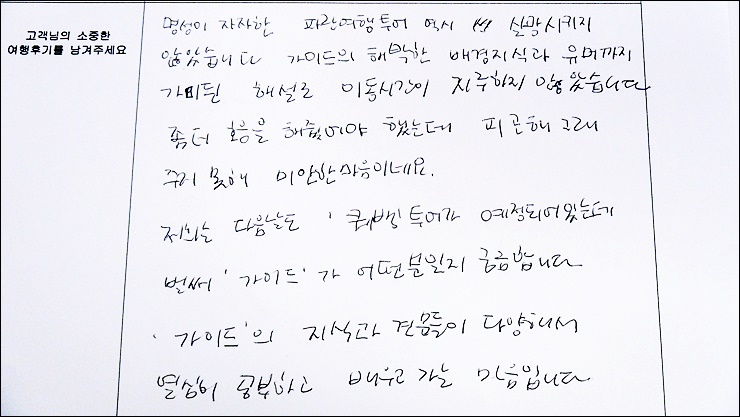 고객님의 소중한
여행후기를 남겨주세요
명성이 자자한 파란여행 투어 역시 실망시키지
않았습니다 가이드의 해박한 배경지식과 유머까지
가미된 해설로 이동시간이 지루하지 않았습니다
좀더 호응을 해줬어야 했는데 피곤해 그래
주지 못해 미안한 마음이네요.
저희는 다음날도 '퀘백' 투어가 예정되어있는데
벌써 '가이드'가 어떤분일지 궁금합니다
'가이드'의 지식과 견문들이 다양해서
열심히 공부하고 배우고 가는 마음입니다